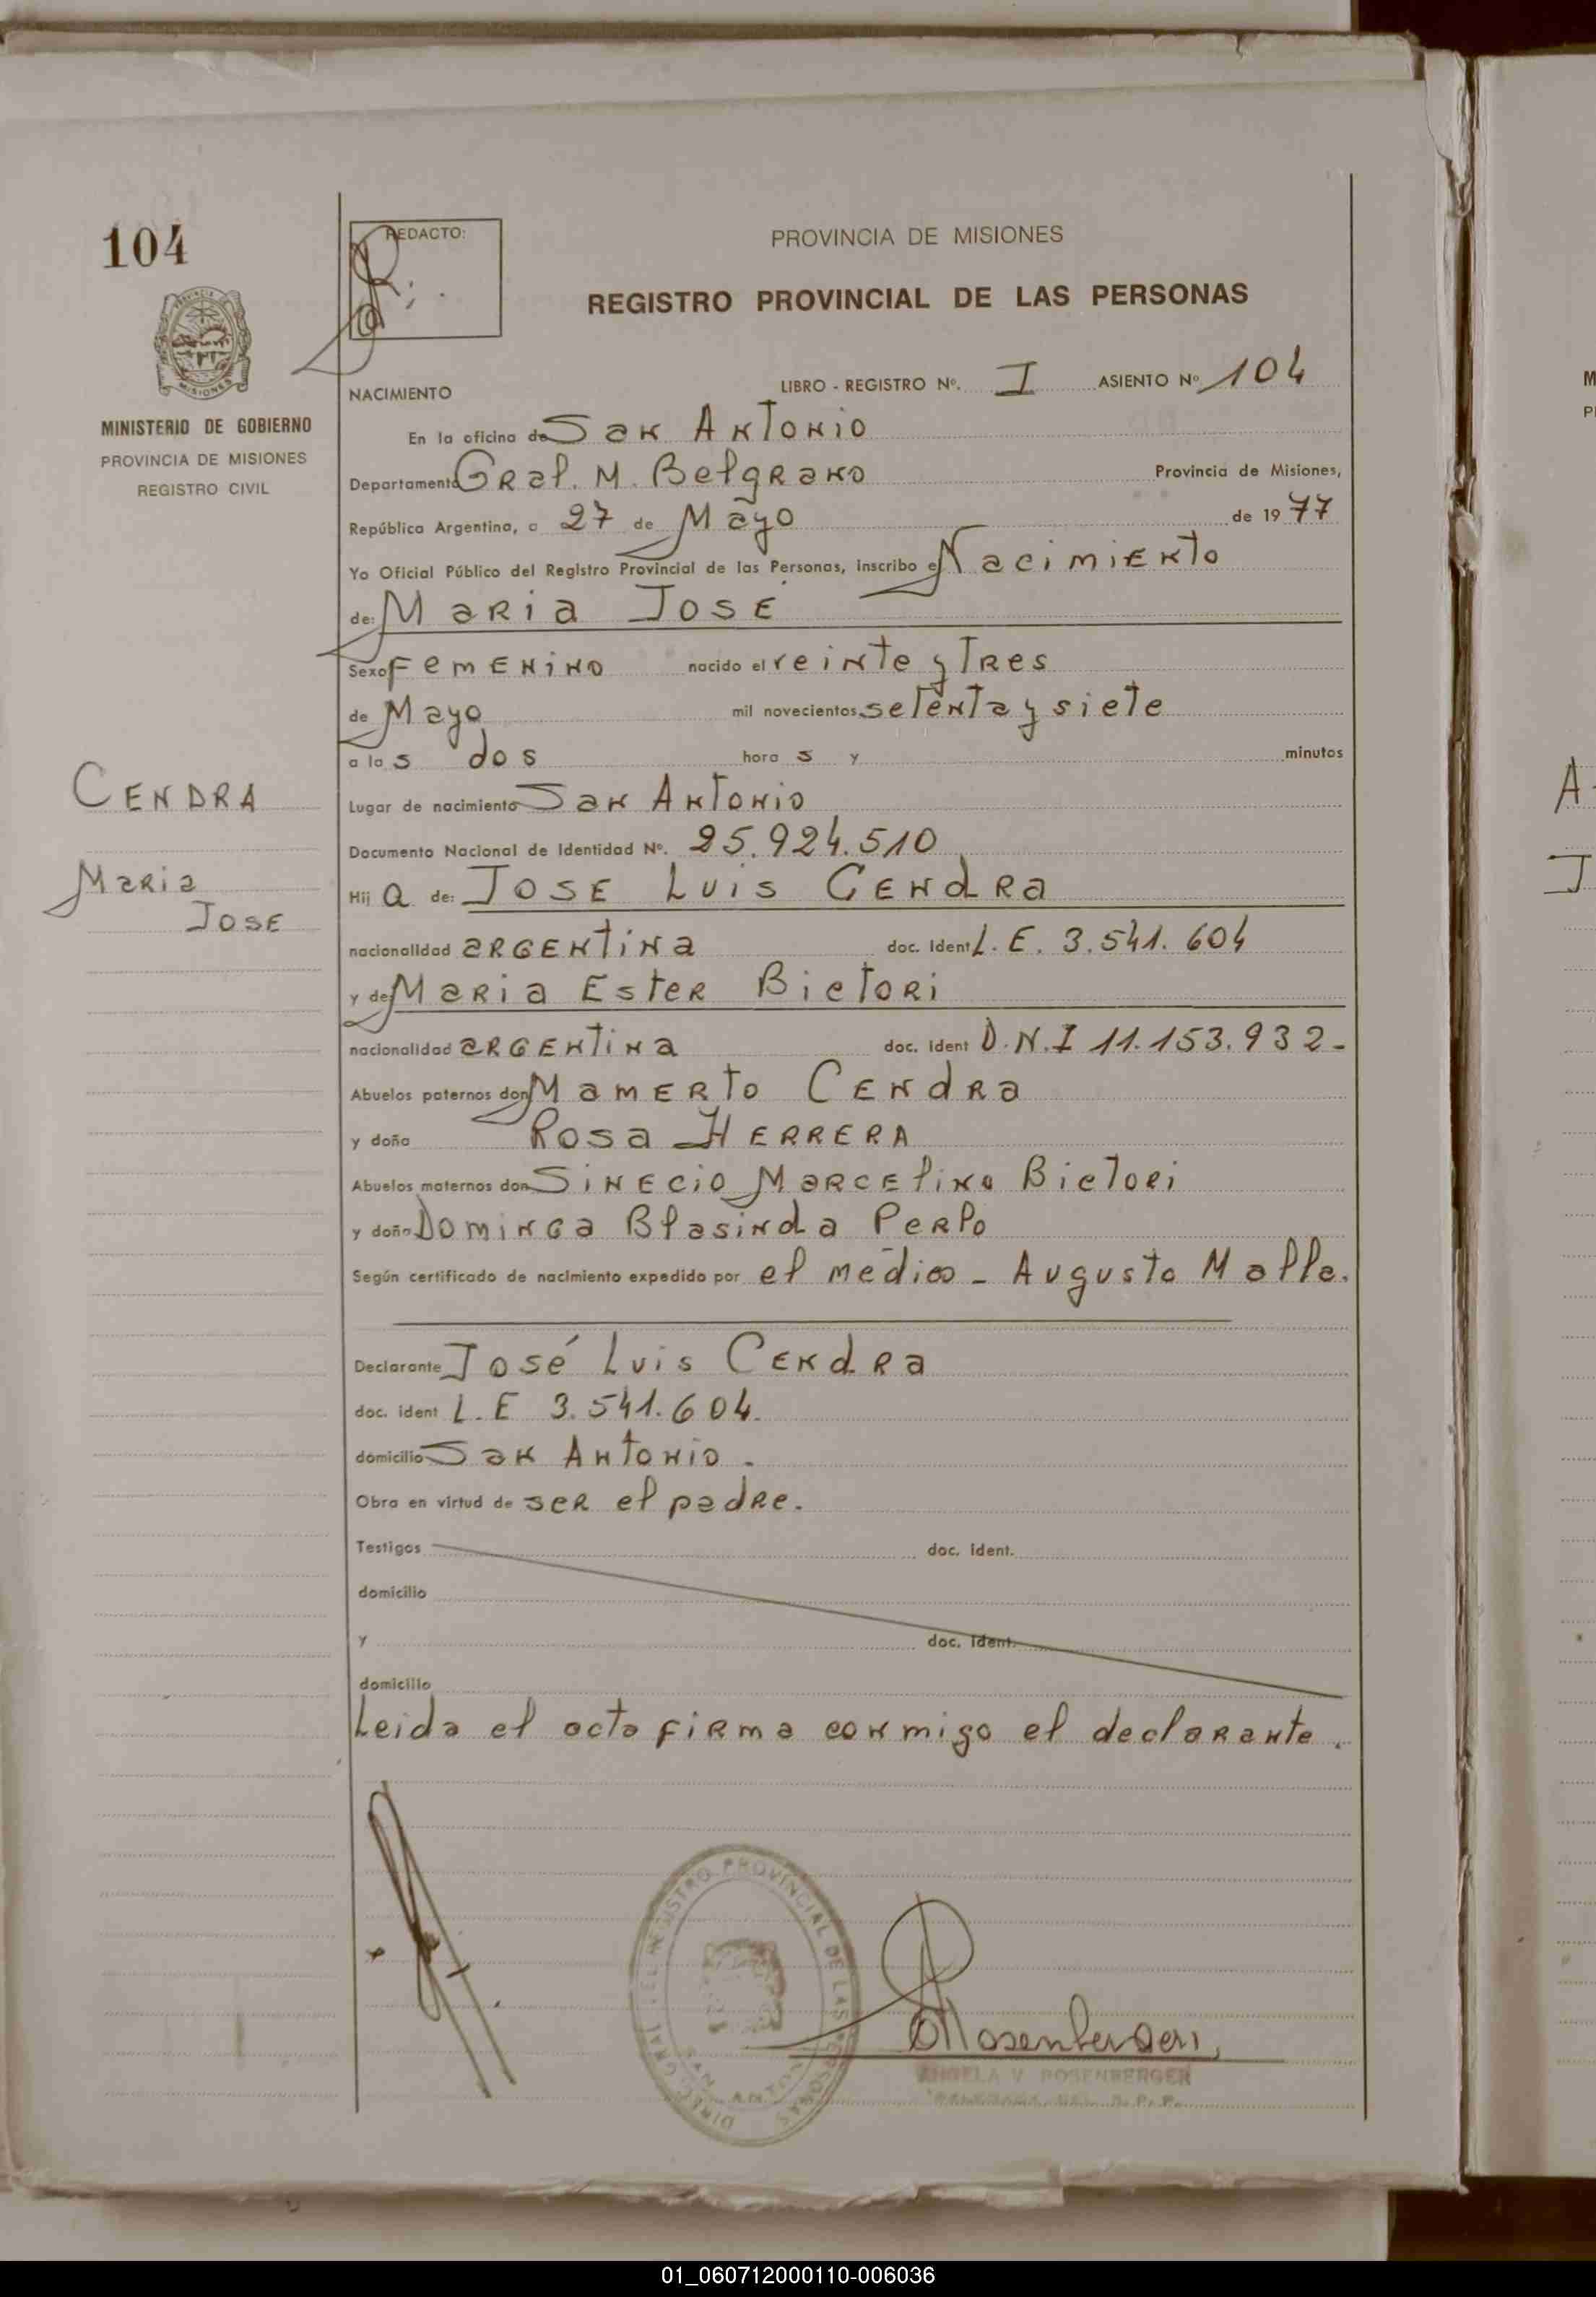 104
REDACTO:
PROVINCIA DE MISIONES
REGISTRO PROVINCIAL DE LAS PERSONAS
MISIONES
MINISTERIO DE GOBIERNO
PROVINCIA DE MISIONES
REGISTRO CIVIL
NACIMIENTO LIBRO - REGISTRO Nº. I ASIENTO Nº 104
En la oficina de San Antonio
Departamento Gral. M. Belgrano Provincia de Misiones,
República Argentina, a 27 de Mayo de 1977
Yo Oficial Público del Registro Provincial de las Personas, inscribo el Nacimiento
de: Maria José
Sexo Femenino nacido el veinte y Tres
de Mayo mil novecientos setenta y siete
a las dos horas y minutos
CENDRA
Maria
Jose
Lugar de nacimiento San Antonio
Documento Nacional de Identidad Nº. 25.924.510
Hija de: Jose Luis Cendra
nacionalidad argentina doc. ident L.E. 3.541.604
y de Maria Ester Bietori
nacionalidad argentina doc. ident D.N.I 11.153.932-
Abuelos paternos don Mamerto Cendra
y doña Rosa Herrera
Abuelos maternos don Sinecio Marcelino Bietori
y doña Dominga Blasinda Perlo
Según certificado de nacimiento expedido por el médico - Augusto Malla.
Declarante José Luis Cendra
doc. ident L.E 3.541.604.
domicilio San Antonio.
Obra en virtud de ser el padre.
Testigos doc. ident.
domicilio
y doc. ident.
domicilio
Leida el acta firma conmigo el declarante.
DIREC. GRAL. DEL REGISTRO PROVINCIAL DE LAS PERSONAS
SAN ANTONIO
ANGELA V. ROSENBERGER
01_060712000110-006036